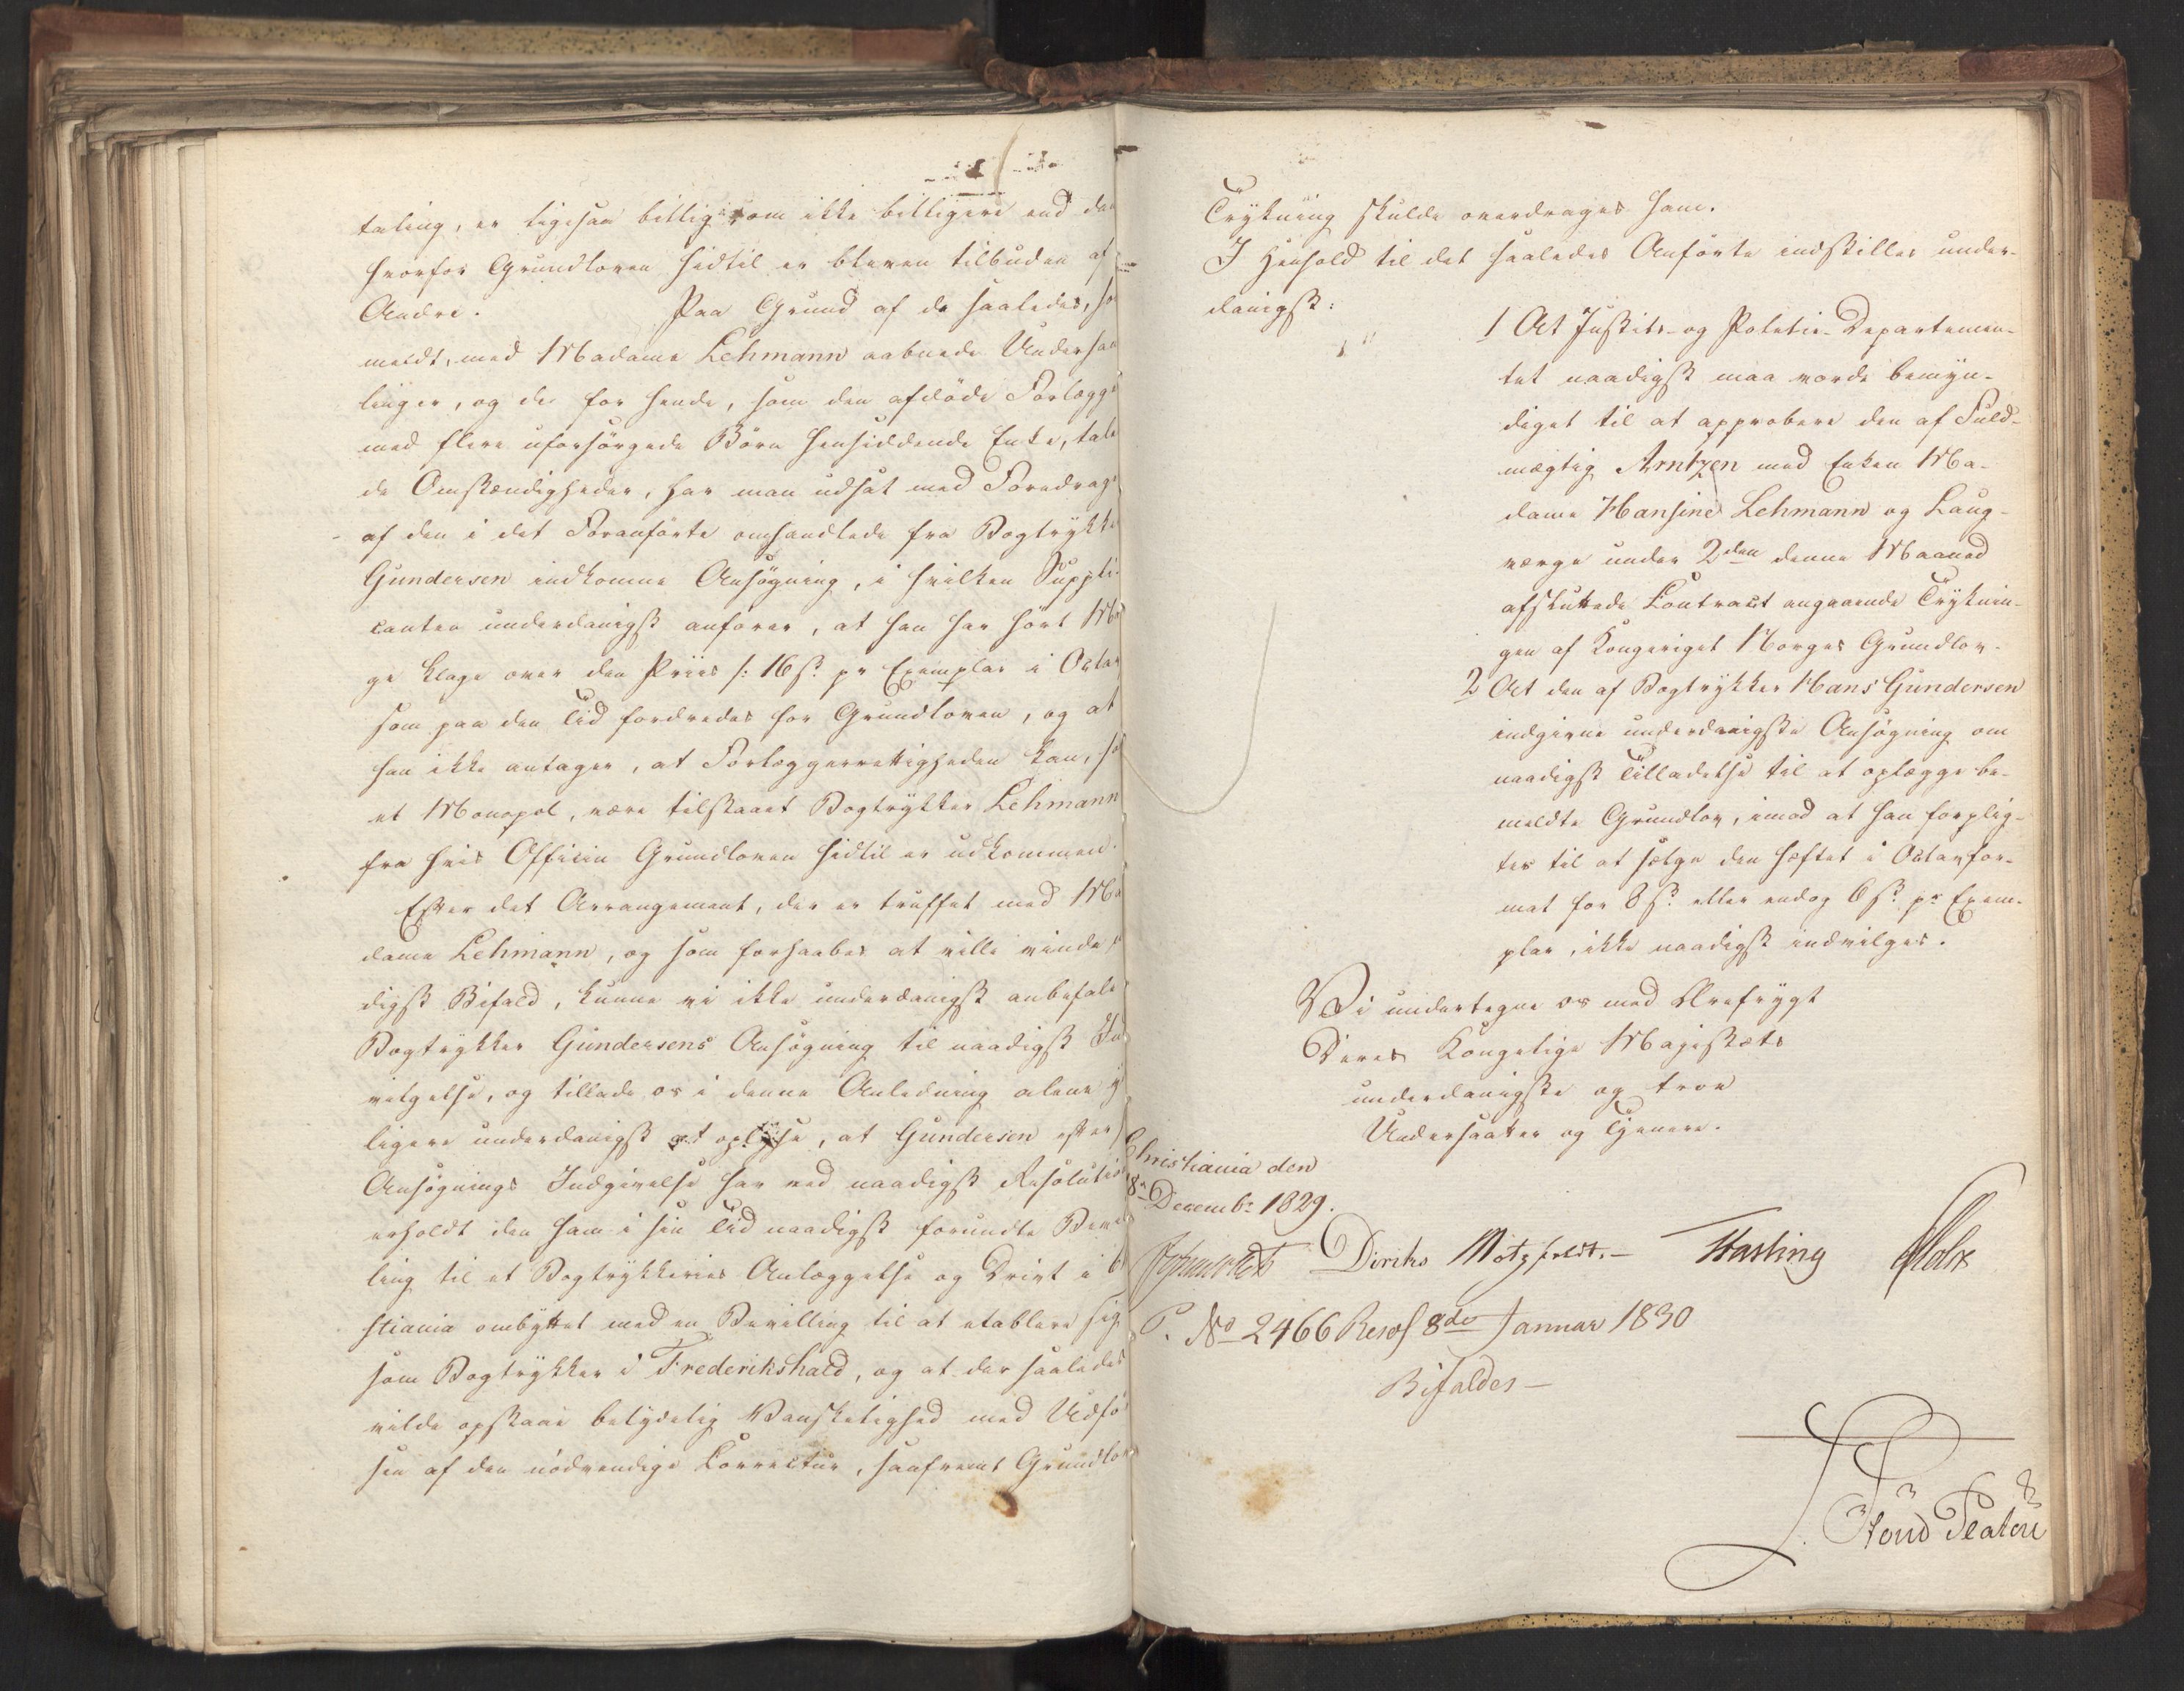 taling, er ligesaa billig som ikke billigere end den
hvorfor Grundloven hidtil er bleven tilbuden af
Andre. Paa Grund af de saaledes, so
meldt, med Madame Lehmann aabnede Underhan
linger, og de for hende, som den afdöde Forlægge
med flere uforsörgede Börn hensiddende Enke, tale
de Omstændigheder, har man udsat med Foredrag
af den i det Foranförte omhandlede fra Bogtrykke
Gundersen indkomne Ansögning, i hvilken Suppli-
canten underdanigst anförer, at han har hört Ma
ge klage over den Priis /: 16 s. pr Exemplar i Octav
som paa den Tid fordredes for Grundloven, og at
han ikke antager, at Forlæggerrettigheden kan, so
et Monopol, være tilstaaet Bogtrykker Lehmann
fra hvis Officin Grundloven hidtil er udkommen.
Efter det Arrangement, der er truffet med Ma
dame Lehmann, og som forhaabes at ville vinde
digst Bifald, kunne vi ikke underdanigst anbefale
Bogtrykker Gundersens Ansögning til naadigst Ind
vilgelse, og tillade os i denne Anledning alene y
ligere underdanigst at oplyse, at Gundersen efter
Ansögnings Indgivelse har ved naadigst Resolution
erholdt den ham i sin Tid naadigst forundte Bevil
ling til et Bogtrykkeries Anlæggelse og Drivt i
stiania ombyttet med en Bevilling til at etablere sig
som Bogtrykker i Frederikshald, og at der saaledes
vilde opstaae betydelig Vanskelighed med Udfö
sen af den nödvendige Correctur, saafremt Grundlov
Trykning skulde overdrages ham.
I Henhold til det saaledes Anförte indstilles under-
danigst:
1 At Justits- og Politie-Departemen-
tet naadigst maa vorde bemyn-
diget til at approbere den af Fuld-
mægtig Arntzen med Enken Ma-
dame Hansine Lehmann og Laug-
værge under 2den denne Maaned
afsluttede Contract angaaende Tryknin-
gen af Kongeriget Norges Grundlov.
2 At den af Bogtrykker Hans Gundersen
indgivne underdanigste Ansögning om
naadigst Tilladelse til at oplægge be-
meldte Grundlov, imod at han forplig-
tes til at sælge den heftet i Octavfor-
mat for 8 s. eller endog 6 s. pr Exem-
plar, ikke naadigst indvilges.
Vi undertegne os med Ærefrygt
Deres Kongelige Majestæts
underdanigste og troe
Undersaatter og Tjenere.
Christiania den
18 Decembr 1829.
Diriks Motzfeldt. Fasting Holst
P. No 2466 Resol 8de Januar 1830
Bifaldes